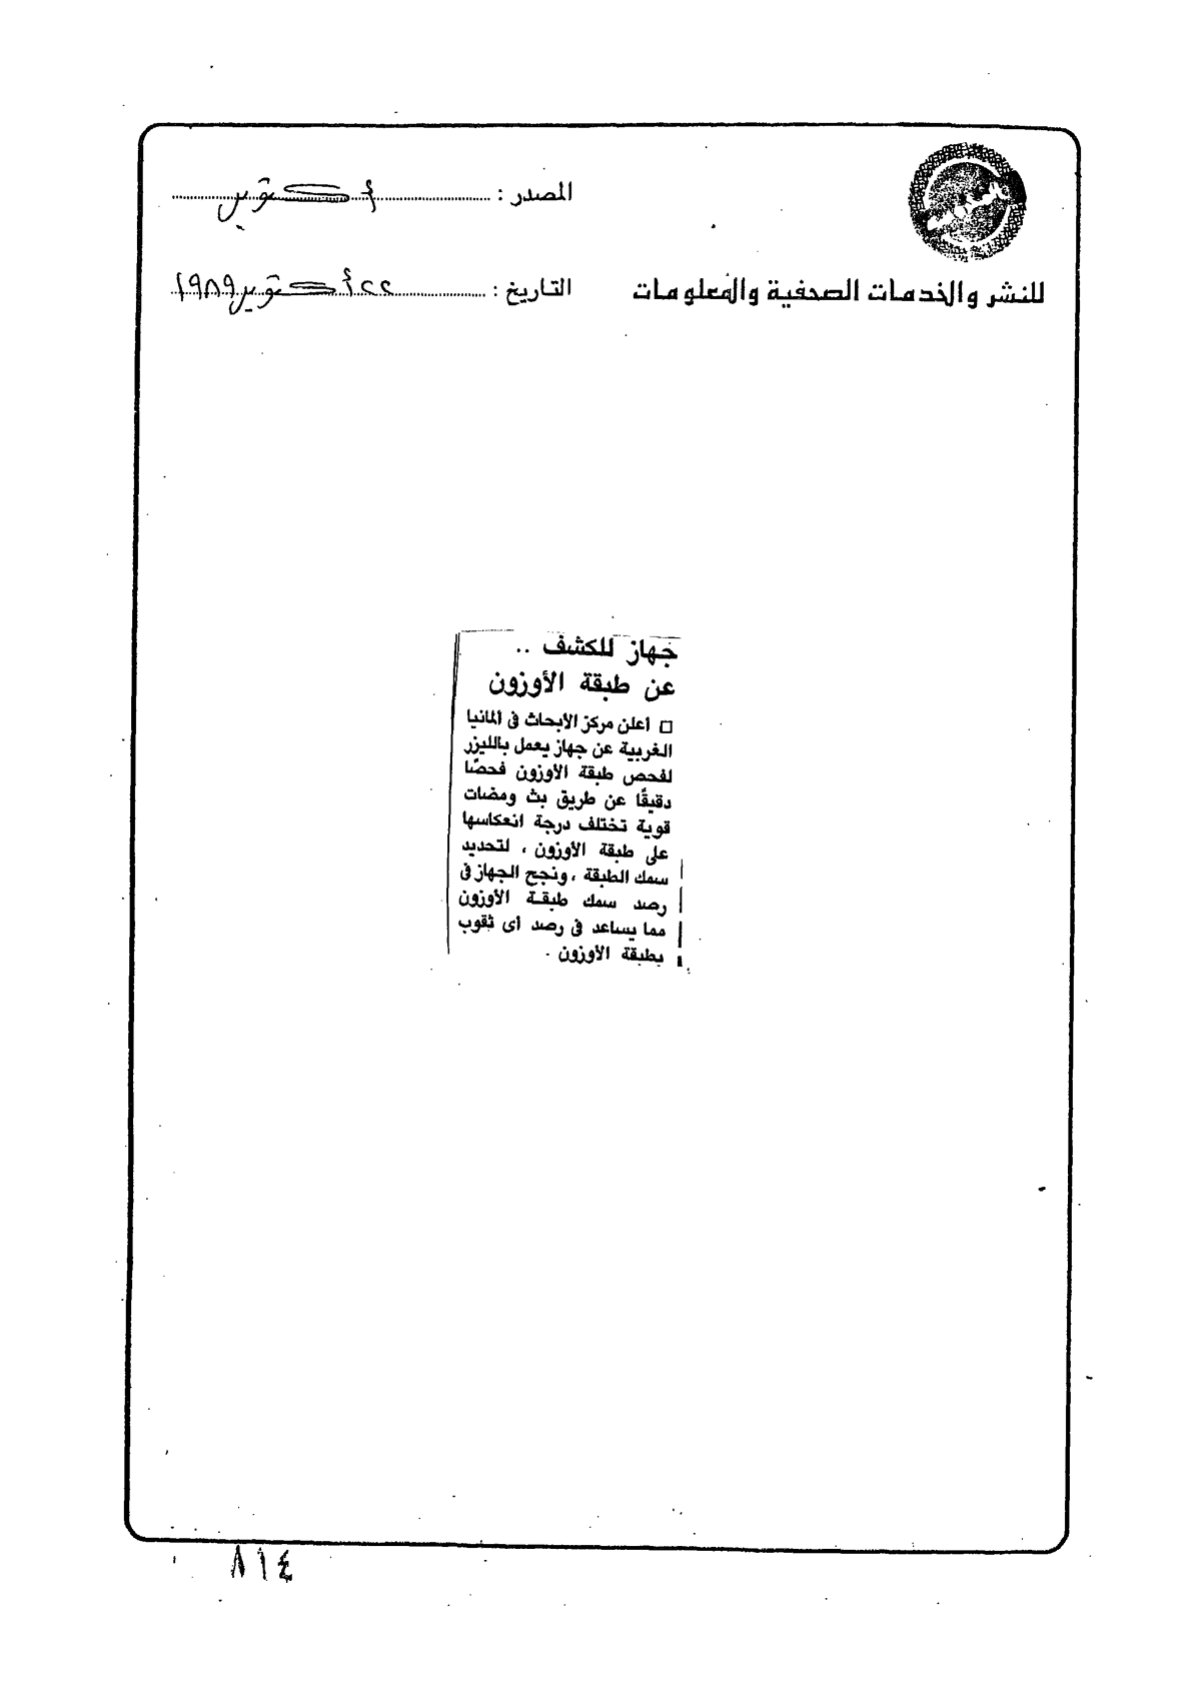 المصدر : أكتوبر
للنشر والخدمات الصحفية والمعلومات
التاريخ : ٢٢ أكتوبر ١٩٨٩
جهاز للكشف ..
عن طبقة الأوزون
□ أعلن مركز الأبحاث فى ألمانيا
الغربية عن جهاز يعمل بالليزر
لفحص طبقة الأوزون فحصًا
دقيقًا عن طريق بث ومضات
قوية تختلف درجة انعكاسها
على طبقة الأوزون ، لتحديد
سمك الطبقة ، ونجح الجهاز فى
رصد سمك طبقة الأوزون
مما يساعد فى رصد أى ثقوب
بطبقة الأوزون .
٨١٤